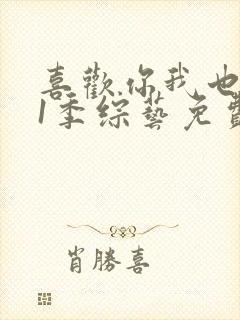 喜歡你我也
1季綜藝免費
肖勝喜